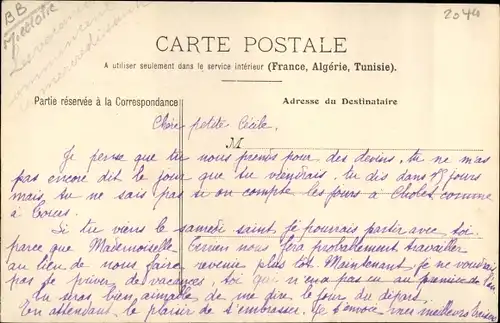 BB
2044
CARTE POSTALE
A utiliser seulement dans le service intérieur (France, Algérie, Tunisie).
Partie réservée à la Correspondance
Adresse du Destinataire
Chère petite Cécile,
M
Je pense que tu nous prends pour des devins, tu ne m'as
pas encore dit le jour que tu viendrais. tu dis dans 15 jours
mais tu ne sais pas si on compte les jours à Cholet comme
à
Si tu viens le samedi saint je pourrais partir avec toi.
parce que Mademoiselle nous fera probablement travailler
au lieu de nous faire revenir plus tôt. Maintenant je ne voudrais
pas te priver de vacances, toi qui n'en a pas eu au
Tu seras bien aimable de me dire le jour du départ.
En attendant le plaisir de t'embrasser. Je t'envoie mes meilleurs baisers